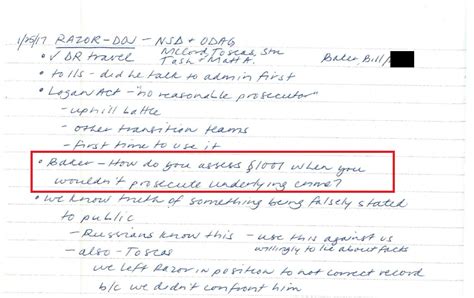 1/25/17 RAZOR-DOJ - NSD + ODAG
McCord, Toscas, Stu
• ✓ DR travel Tash + Matt A. Baker, Bill,
• tolls - did he talk to admin first
• Logan Act - "no reasonable prosecutor"
- uphill battle
- other transition teams
- first time to use it
• Baker - How do you assess §1001 when you
wouldn't prosecute underlying crime?
• we know truth of something being falsely stated
to public
- Russians know this - use this against us
willingly to lie about facts
- also - Toscas
we left Razor in position to not correct record
b/c we didn't confront him